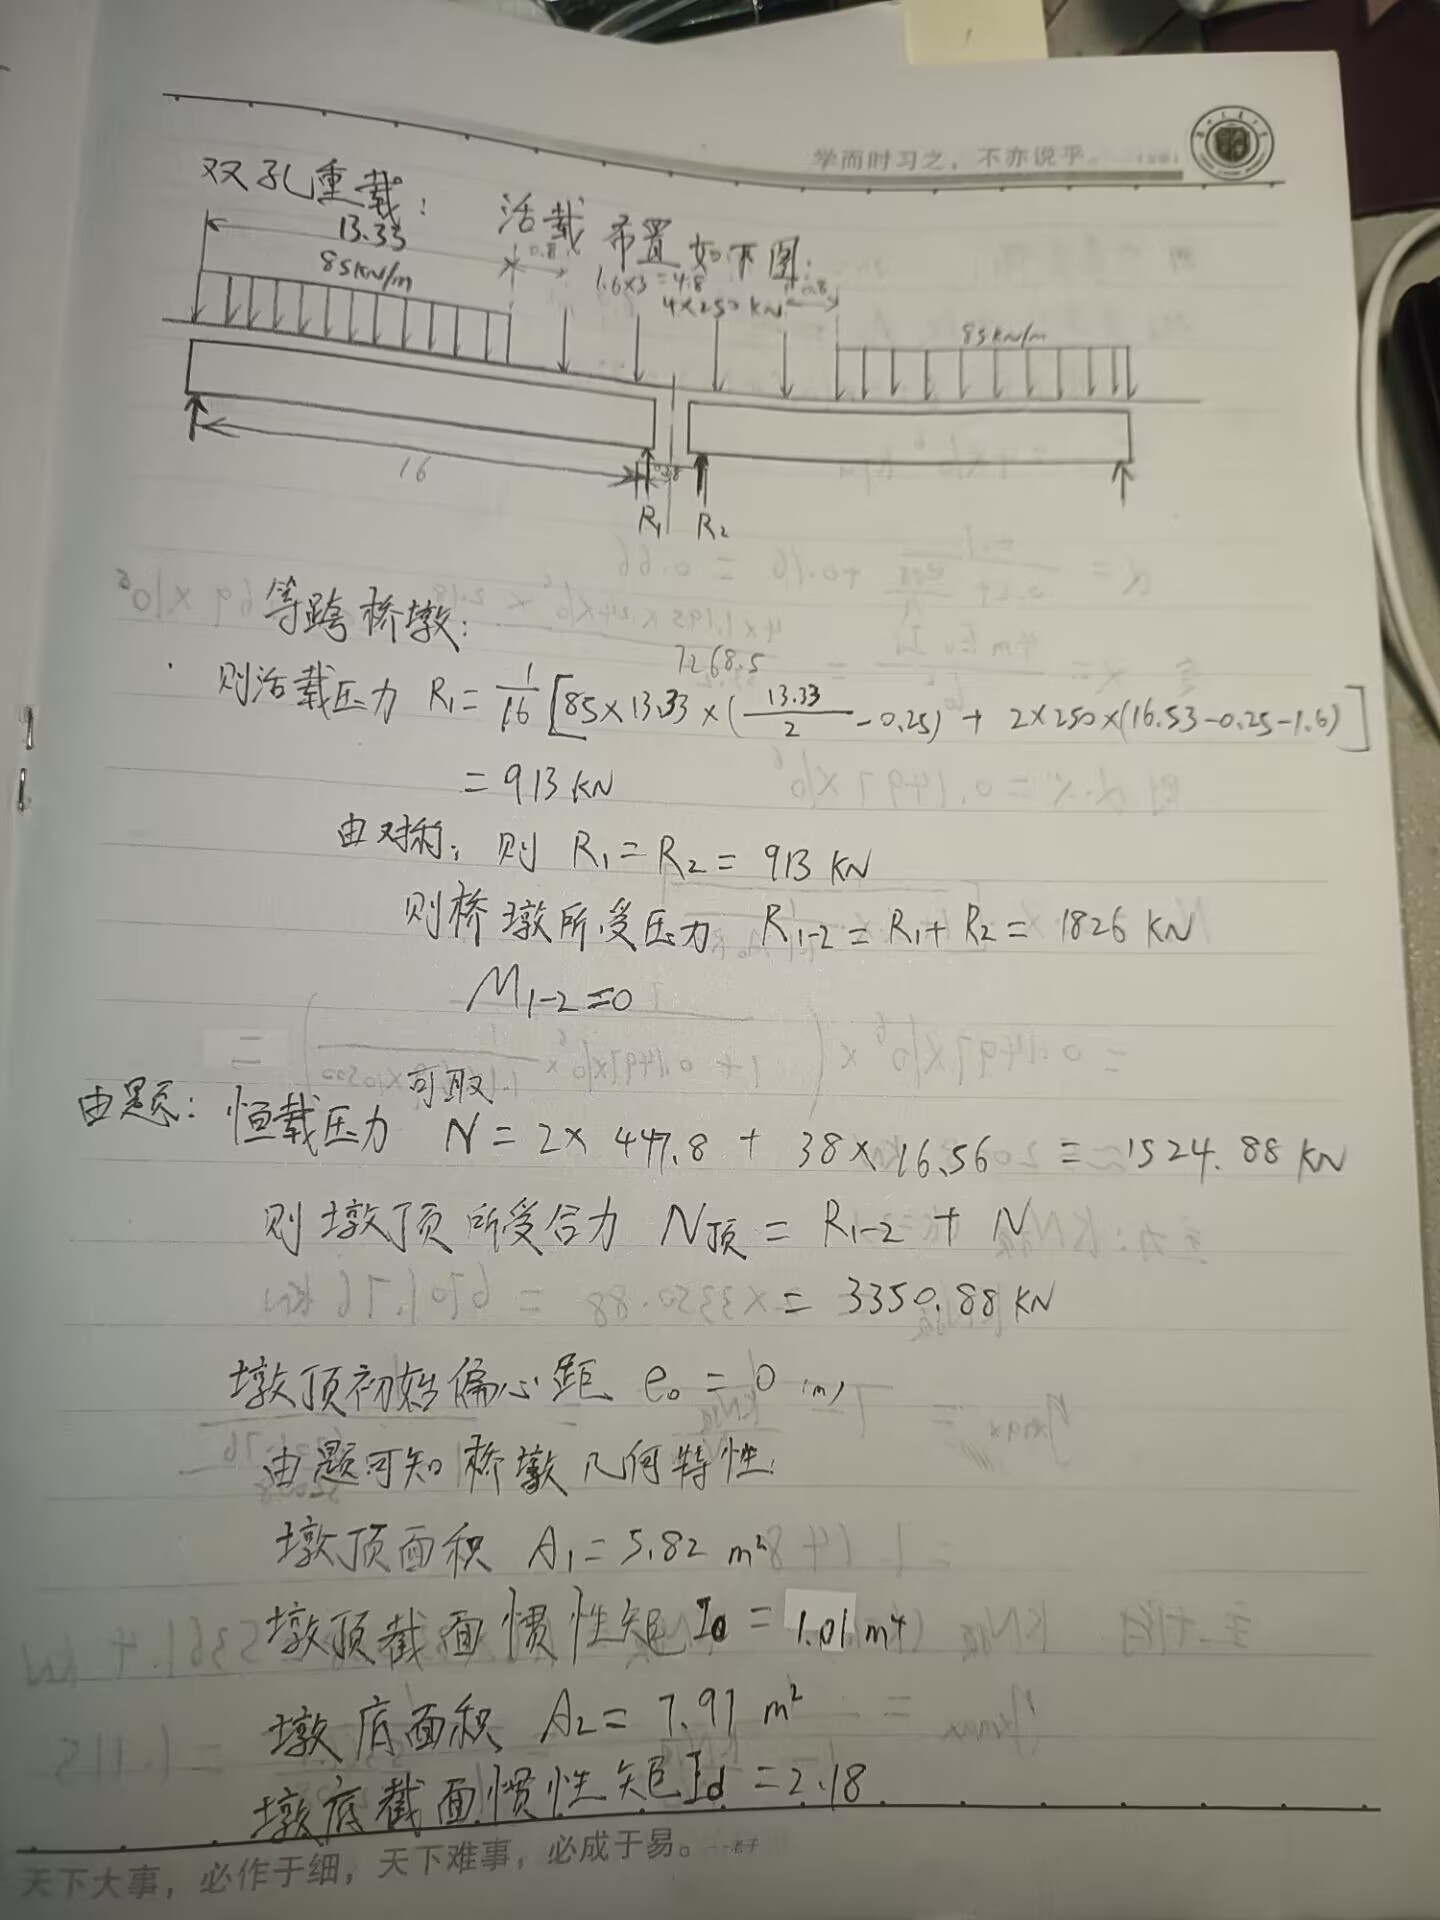 学而时习之，不亦说乎。
双孔重载： 活载布置如下图：
13.33 0.8 1.6×3=4.8 0.8
85KN/m 4×250KN 85KN/m
16
R₁ R₂
等跨桥墩：
7268.5
则活载压力 R₁ = 1/16 [85×13.33×(13.33/2 -0.25) + 2×250×(16.53-0.25-1.6)]
= 913 KN
由对称，则 R₁ = R₂ = 913 KN
则桥墩所受压力 R₁₋₂ = R₁+R₂ = 1826 KN
M₁₋₂=0
可取
由题：恒载压力 N = 2× 447.8 + 38×16.56 = 1524.88 KN
则墩顶所受合力 N顶 = R₁₋₂ + N
= 3350.88 KN
墩顶初始偏心距 e₀ = 0 (m)
由题可知桥墩几何特性：
墩顶面积 A₁ = 5.82 m²
墩顶截面惯性矩 I₀ = 1.01 m⁴
墩底面积 A₂ = 7.97 m²
墩底截面惯性矩 Id = 2.18
天下大事，必作于细，天下难事，必成于易。--老子